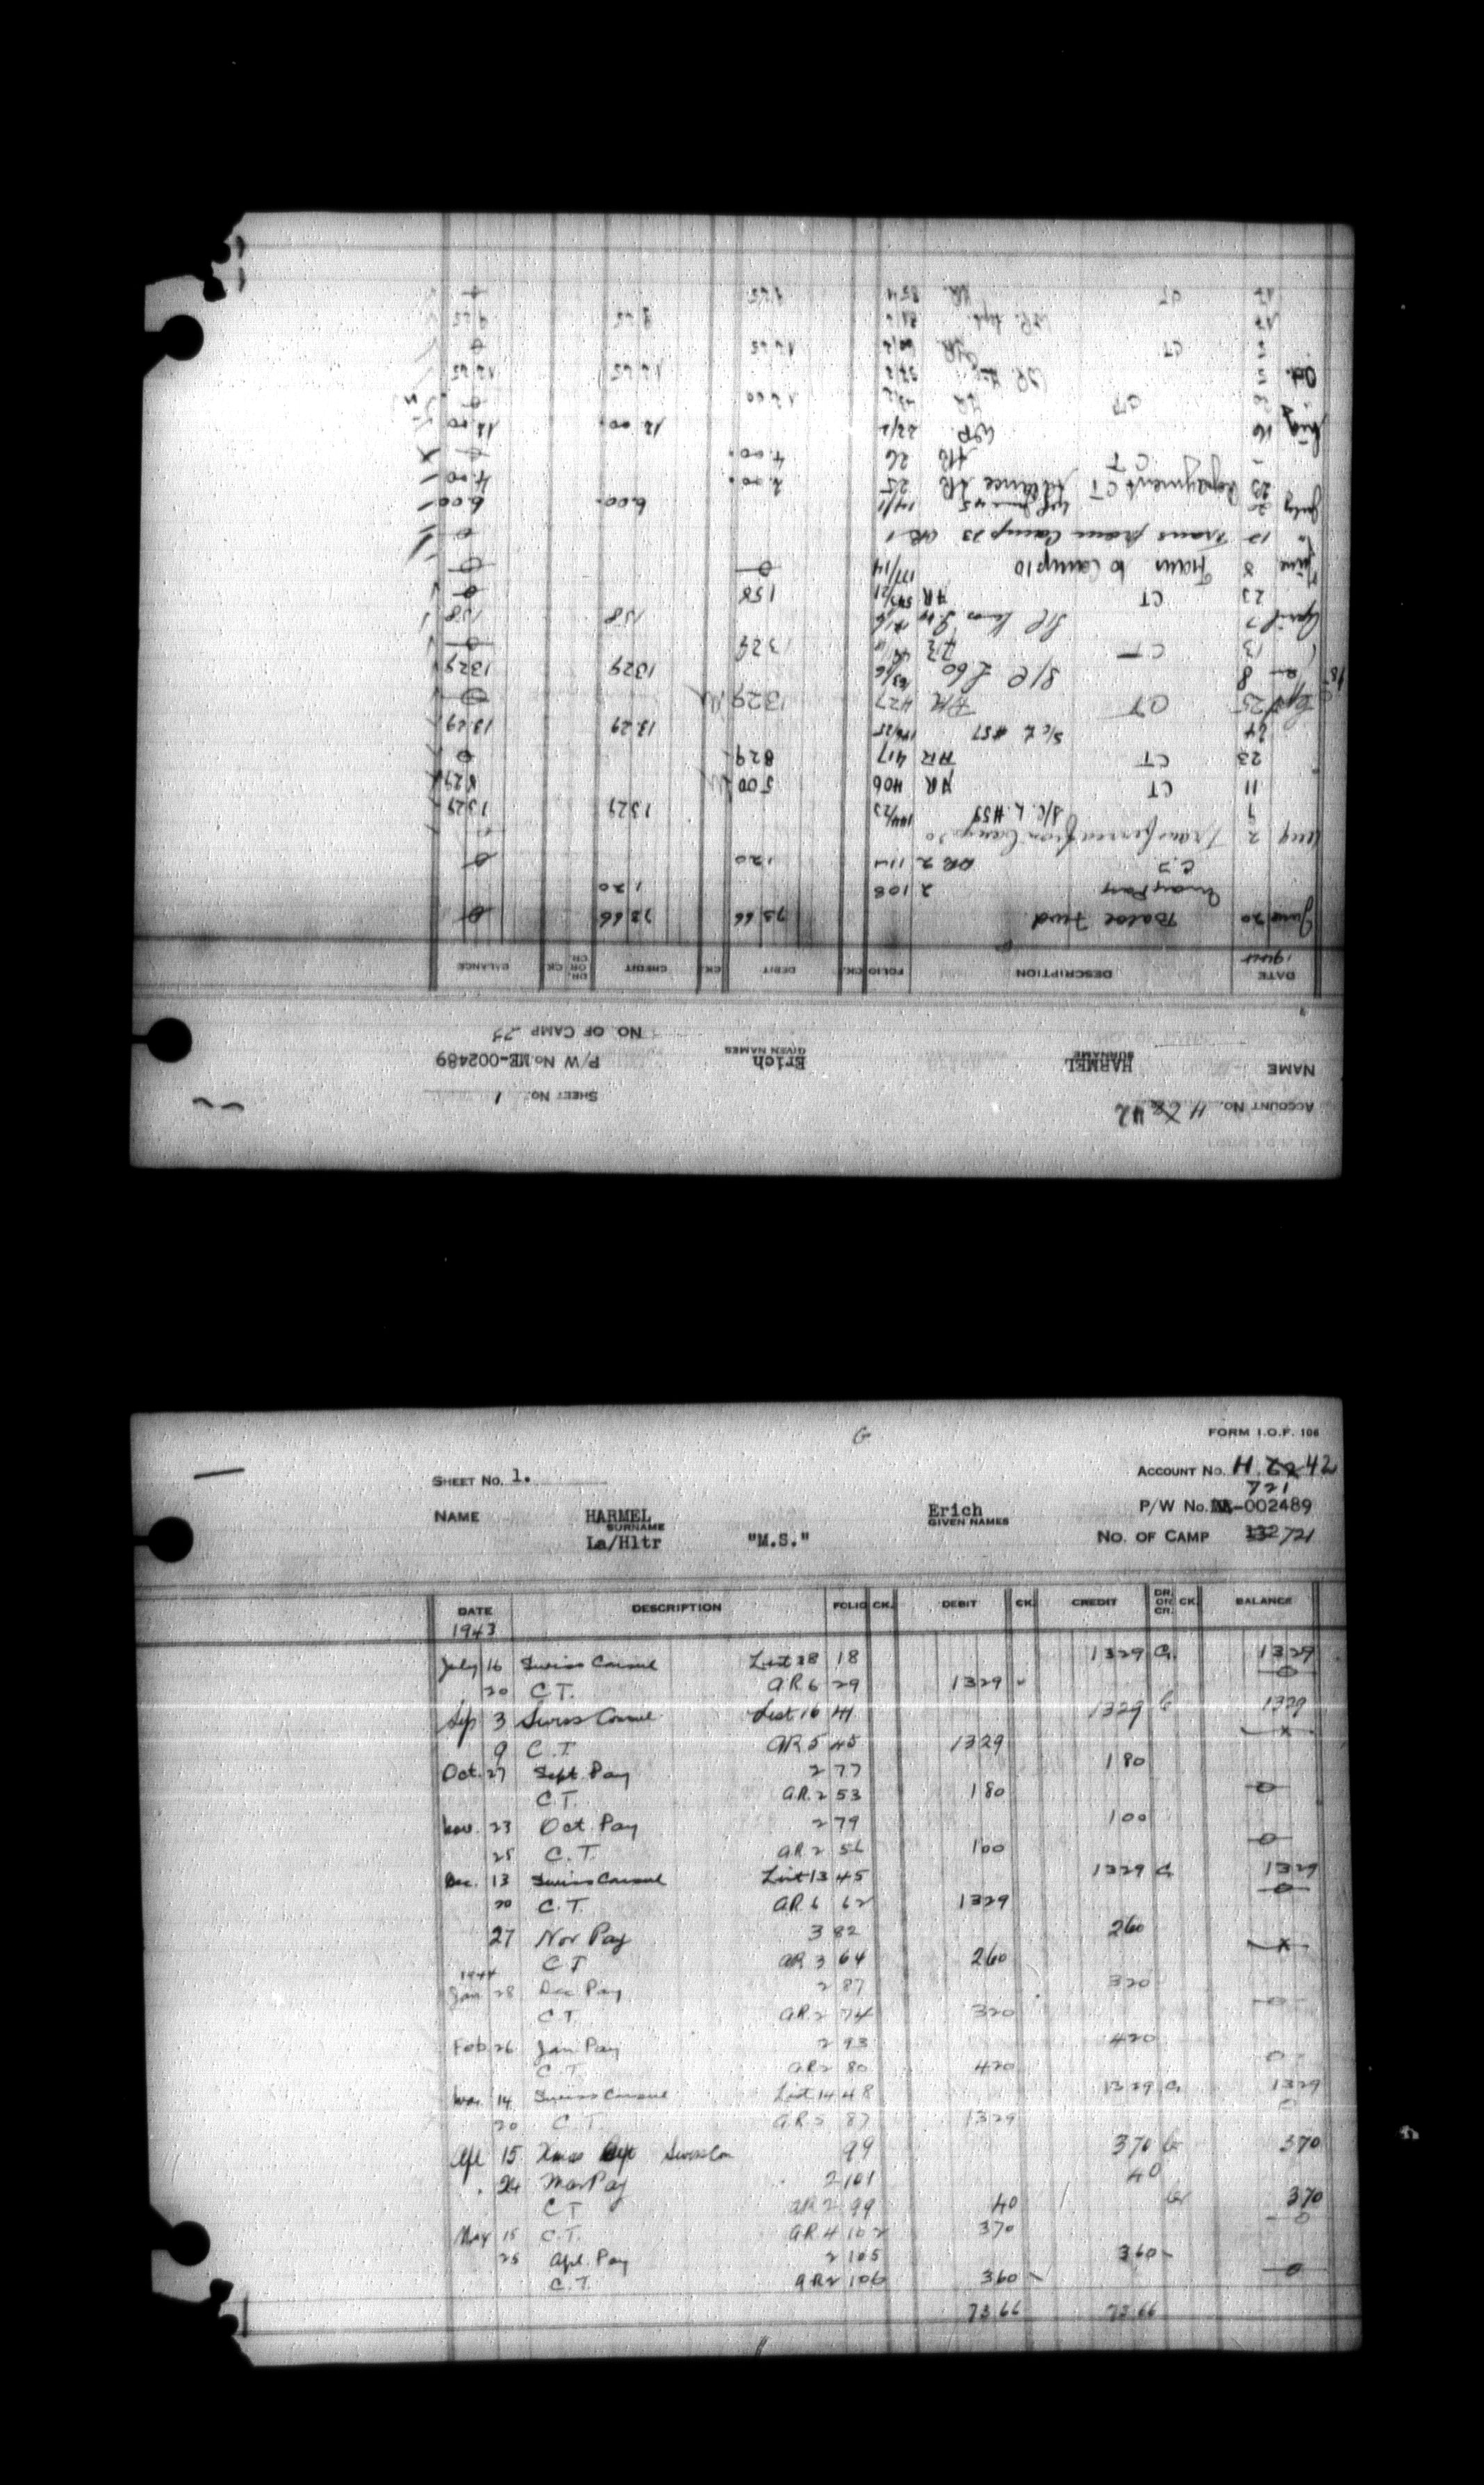 G
FORM I.O.F. 106
SHEET NO. 1.
ACCOUNT NO. H 42
721
NAME HARMEL Erich P/W No. -002489
SURNAME GIVEN NAMES
La/Hltr "M.S." NO. OF CAMP 132/721
DATE DESCRIPTION FOLIO CK. DEBIT CK. CREDIT DR. OR CR. CK. BALANCE
1943
July 16 Swiss Consul List 38 18 1329 1329
20 C.T. AR 6 29 1329 0
Sep 3 Swiss Consul List 16 41 1329 1329
9 C.T. AR 5 45 1329
Oct. 27 Sept. Pay 2 77 1 80
C.T. AR. 2 53 1 80 0
Nov. 23 Oct Pay 2 79 1 00
25 C.T. AR 2 56 1 00 0
Dec. 13 Swiss Consul List 13 45 1329 1329
20 C.T. AR 6 62 1329 0
27 Nov Pay 3 82 2 60
C T AR 3 64 2 60
1944
Jan 28 Dec Pay 2 87 3 20
C.T. AR 2 74 3 20 0
Feb 26 Jan Pay 2 93 4 20
C.T. AR 2 80 4 20 0
Mar. 14 Swiss Consul List 14 48 1329 1329
20 C.T. AR 5 87 1329 0
Apl 15 Xmas Swiss Con 99 3 70 3 70
24 Mar Pay 2 101 40
CT AR 2 99 40 3 70
May 15 C.T. AR 4 102 3 70 0
25 Apl. Pay 2 105 3 60
C.T. AR 2 106 3 60 0
73 66 73 66
ACCOUNT NO. H 42 SHEET NO. 1
NAME HARMEL Erich P/W No. ME-002489
SURNAME GIVEN NAMES
NO. OF CAMP 23
DATE DESCRIPTION FOLIO CK. DEBIT CK. CREDIT DR. OR CR. CK. BALANCE
June 20 Fwd. 73 66 73 66 0
May Pay 2 108 1 20
C.T. AR 2 111 1 20 0
Aug 2 Transferred from Camp 20
9 S/C. L. #59 144/23 1329 1329
11 CT AR 406 500 829
23 CT AR 417 829 0
24 S/C L #57 1329 1329
Sept 25 CT AR 427 1329 0
8 S/C L 60 1329 1329
13 CT 1329 0
April 7 S/C Xmas 158 158
23 CT AR 158 0
June 8 Trans to Camp 10 177/14 0 0
" 12 Trans from Camp 23 1 0
July 20 14/1 6.00 6.00
23 Repayment CT Advance AR 25 2.00 4.00
CT AR 26 4.00
Aug 16 WP. 22/2 12.00 12.00
CT AR 12 00 0
Oct. 5 WP. 12 65 12 65
5 CT AR 12 65 0
17 WP. Sept. 9 65 9 65
17 CT AR 854 9 65